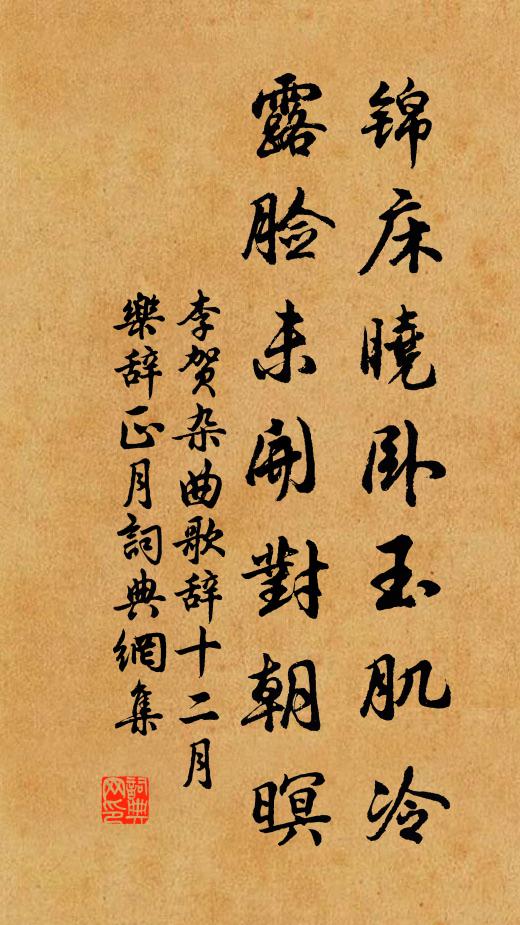 锦床曉卧玉肌冷
露脸未開對朝暝
李贺杂曲歌辞十二月
樂辞正月詞典網集
詞典
网印